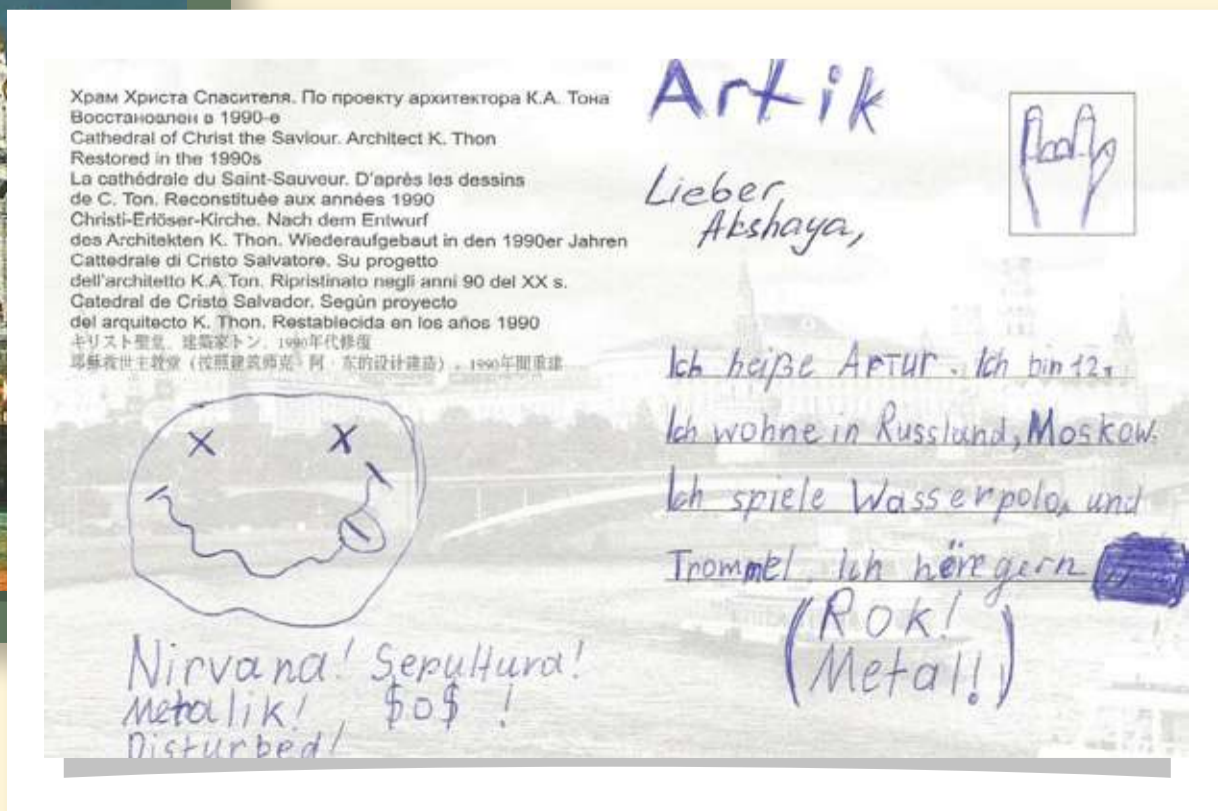 Храм Христа Спасителя. По проекту архитектора К.А. Тона
Восстановлен в 1990-е
Cathedral of Christ the Saviour. Architect K. Thon
Restored in the 1990s
La cathédrale du Saint-Sauveur. D'après les dessins
de C. Ton. Reconstituée aux années 1990
Christi-Erlöser-Kirche. Nach dem Entwurf
des Architekten K. Thon. Wiederaufgebaut in den 1990er Jahren
Cattedrale di Cristo Salvatore. Su progetto
dell'architetto K.A.Ton. Ripristinato negli anni 90 del XX s.
Catedral de Cristo Salvador. Según proyecto
del arquitecto K. Thon. Restablecida en los años 1990
キリスト聖堂、建築家トン、1990年代修復
耶穌救世主教堂（按照建筑师克·阿·东的设计建造），1990年間重建
Artik
Lieber
Akshaya,
Ich heiße Artur. Ich bin 12.
Ich wohne in Russland, Moskow.
Ich spiele Wasserpolo, und
Trommel. Ich höre gern
(Rok!
Metal!)
Nirvana! Sepultura!
Metalik! $o$ !
Disturbed!